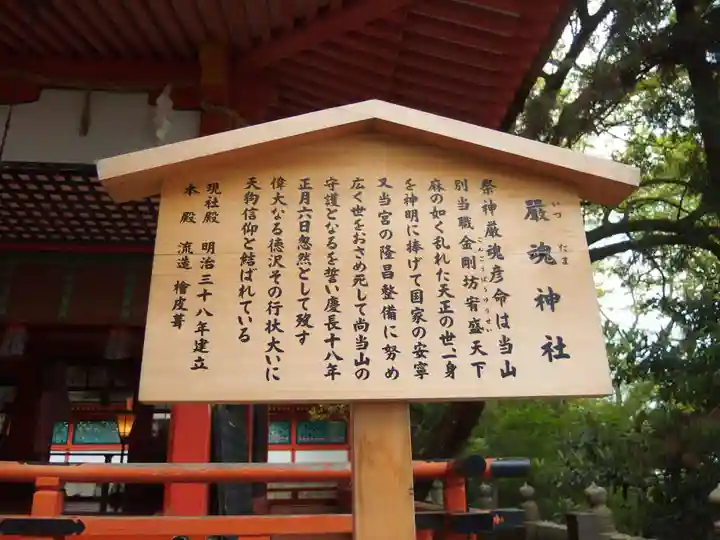 厳魂神社
いつ たま
祭神厳魂彦命は当山
別当職金剛坊宥盛天下
こんごうぼうゆうせい
麻の如く乱れた天正の世一身
を神明に捧げて国家の安寧
又当宮の隆昌整備に努め
広く世をおさめ死して尚当山の
守護となるを誓い慶長十八年
正月六日忽然として歿す
偉大なる徳沢その行状大いに
天狗信仰と結ばれている
現社殿 明治三十八年建立
本殿 流造 檜皮葺